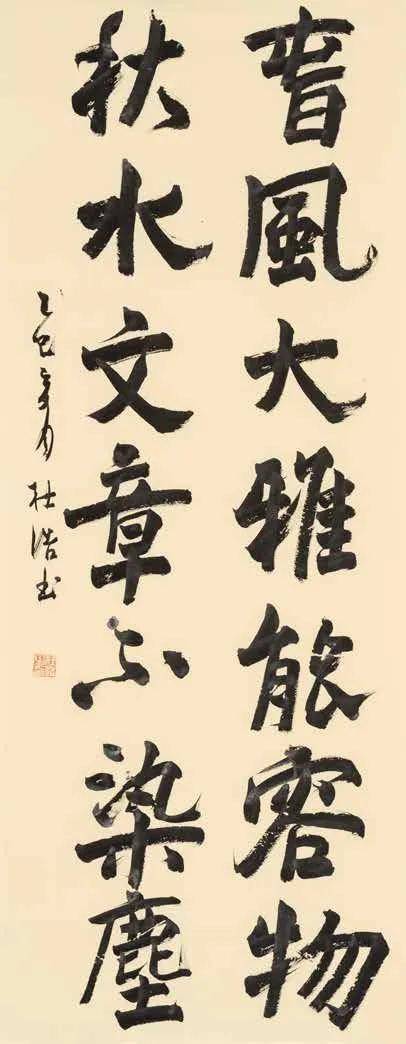 春風大雅能容物
秋水文章不染塵
乙巳月杜浩书